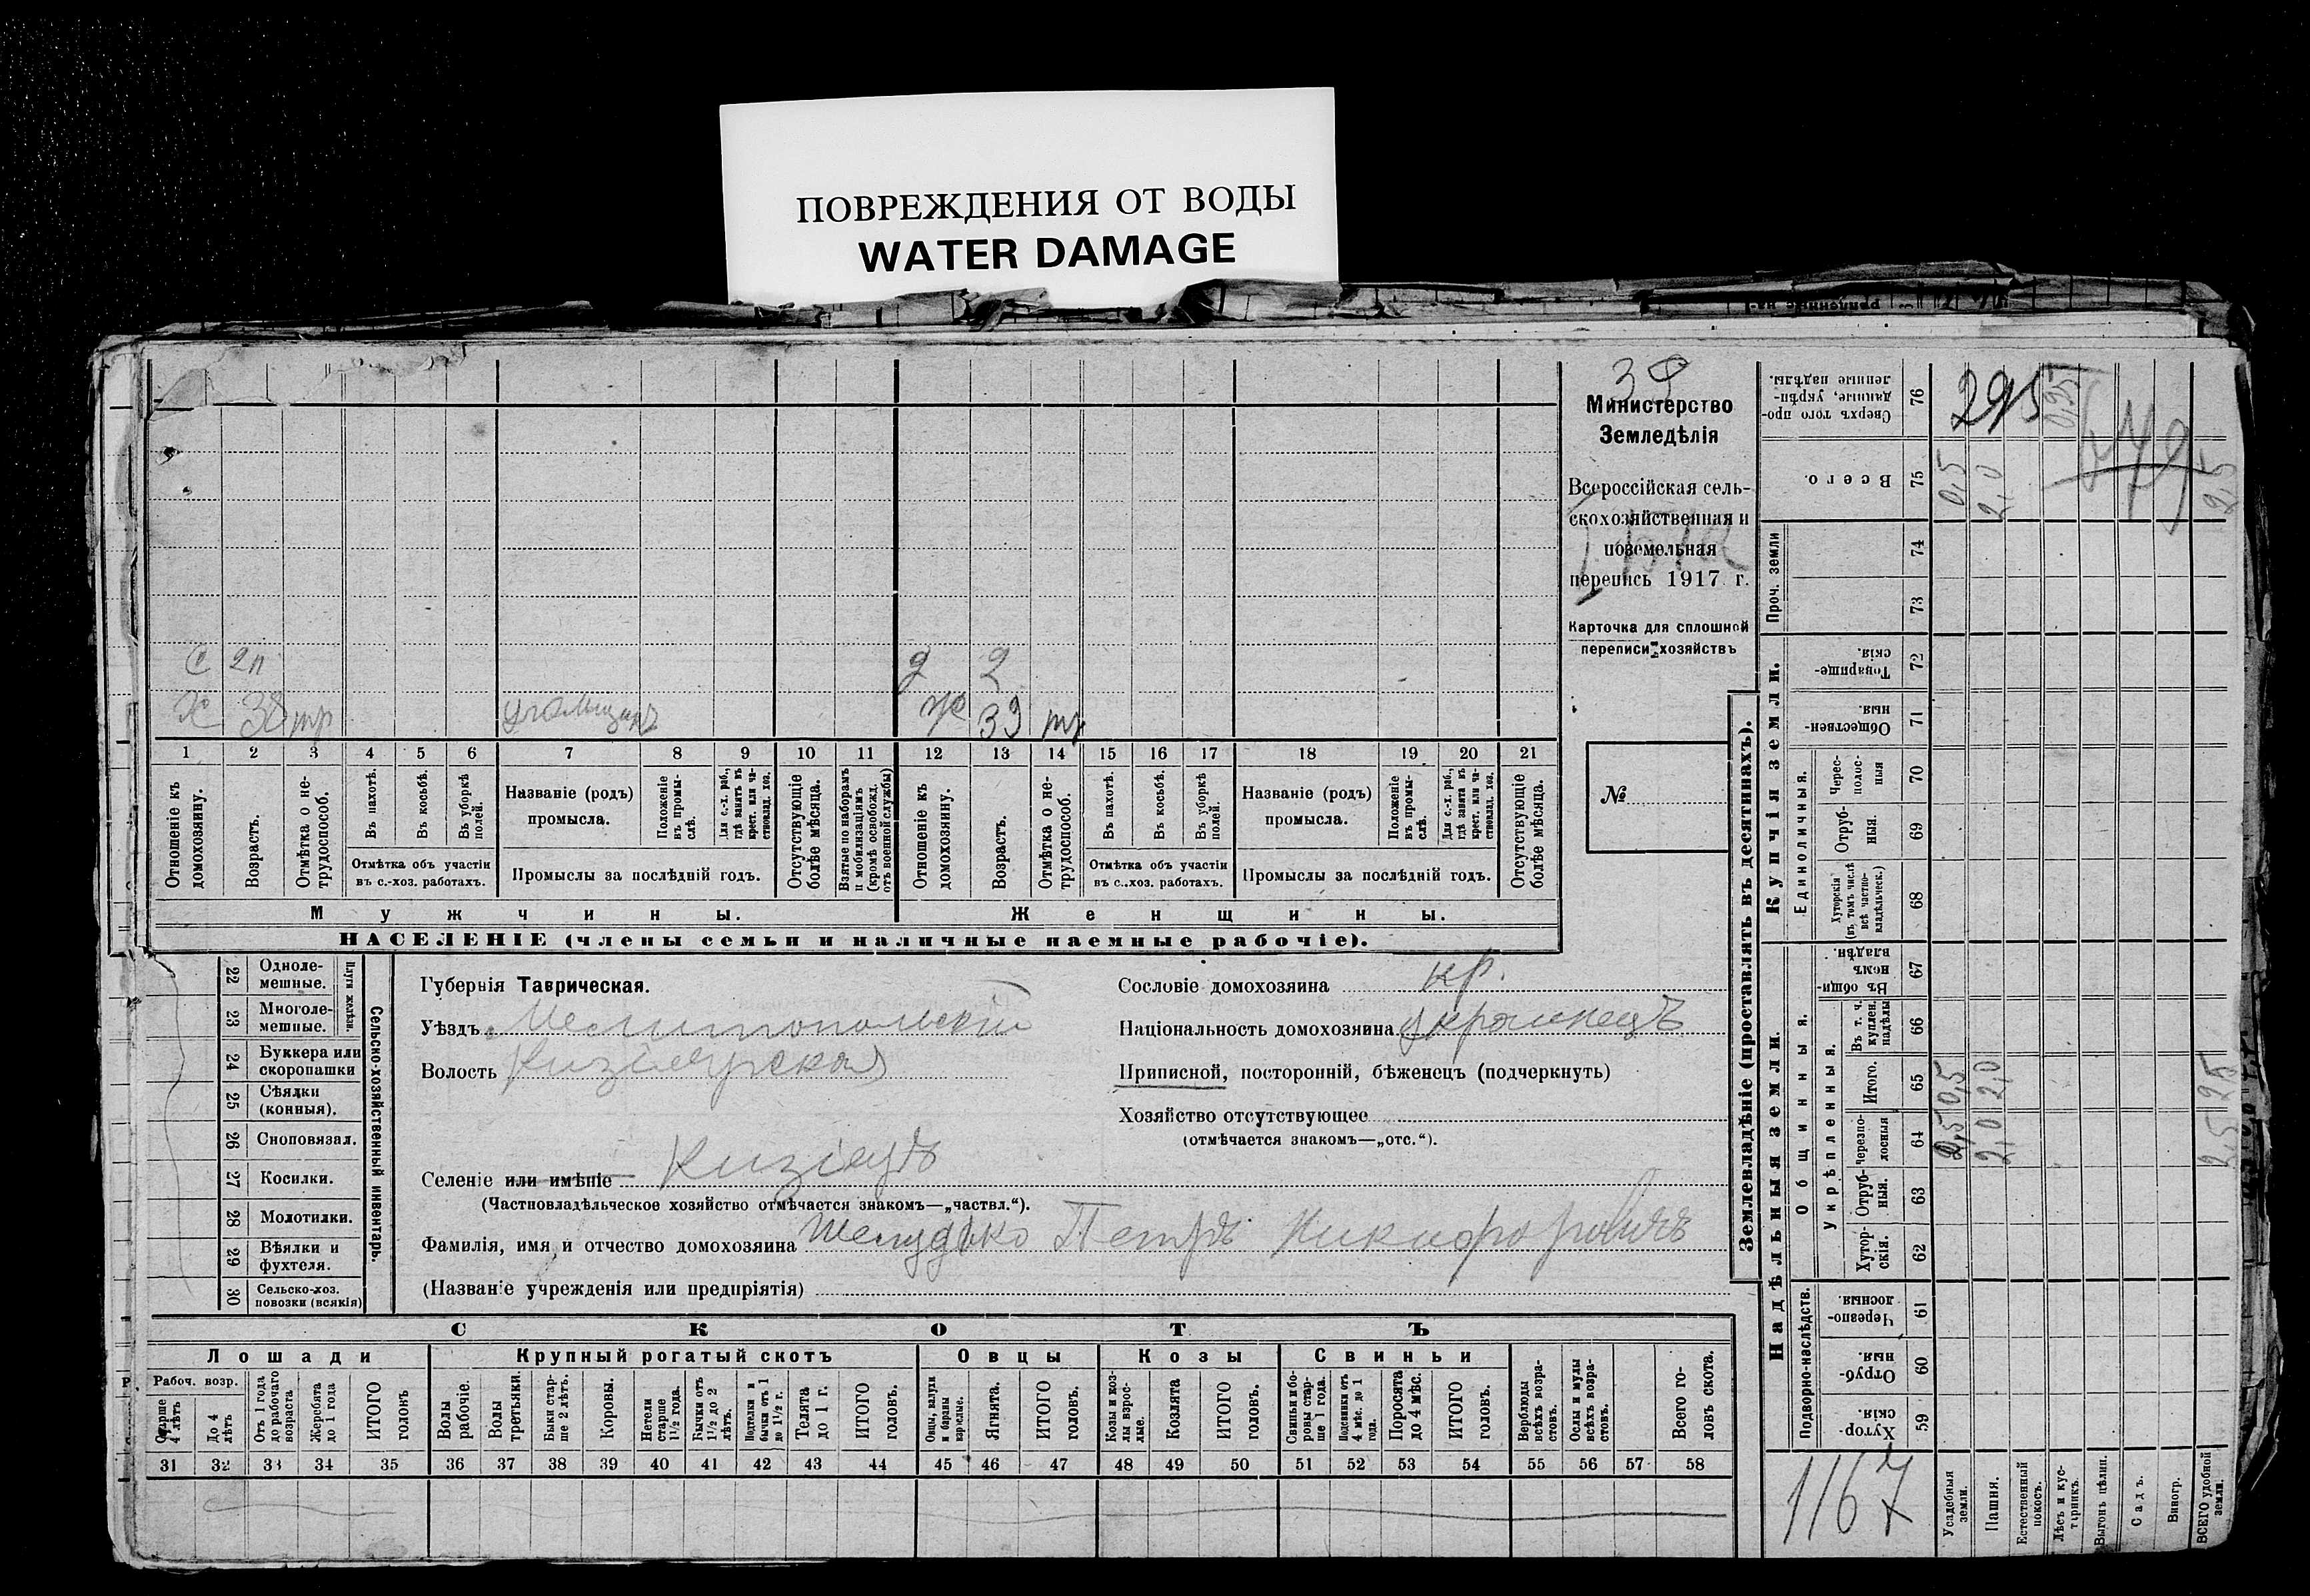 ПОВРЕЖДЕНИЯ ОТ ВОДЫ
WATER DAMAGE
38
Министерство
Земледѣлія
Всероссійская сель-
скохозяйственная и
поземельная
перепись 1917 г.
Карточка для сплошной
переписи хозяйствъ
№
с 2п
Х 38 тр
д 2
ж 39 тр
1 2 3 4 5 6 7 8 9 10 11 12 13 14 15 16 17 18 19 20 21
Отношеніе къ домохозяину.
Возрастъ.
Отмѣтка о не-трудоспособ.
Въ пахотѣ.
Въ косьбѣ.
Въ уборкѣ полей.
Отмѣтка объ участіи въ с.-хоз. работахъ.
Названіе (родъ) промысла.
Положеніе въ промы-слѣ.
Для с.-х. раб., гдѣ занятъ въ крест. или ча-стновлад. хоз.
Промыслы за послѣдній годъ.
Отсутствующіе болѣе мѣсяца.
Взятые по наборамъ и мобилизаціямъ (кромѣ освобожд. отъ военной службы)
Отношеніе къ домохозяину.
Возрастъ.
Отмѣтка о не-трудоспособ.
Въ пахотѣ.
Въ косьбѣ.
Въ уборкѣ полей.
Отмѣтка объ участіи въ с.-хоз. работахъ.
Названіе (родъ) промысла.
Положеніе въ промы-слѣ.
Для с.-х. раб., гдѣ занята въ крест. или ча-стновлад. хоз.
Промыслы за послѣдній годъ.
Отсутствующіе болѣе мѣсяца.
Мужчины.
Женщины.
НАСЕЛЕНІЕ (члены семьи и наличные наемные рабочіе).
22 Одноле-мешные.
23 Многоле-мешные.
Плуги желѣзн.
24 Буккера или скоропашки
25 Сѣялки (конныя).
26 Сноповязал.
27 Косилки.
28 Молотилки.
29 Вѣялки и фухтеля.
30 Сельско-хоз. повозки (всякія)
Сельско-хозяйственный инвентарь.
Губернія Таврическая.
Уѣздъ Мелитопольскій
Волость Кизіярская
Селеніе или имѣніе Кизіяръ
(Частновладѣльческое хозяйство отмѣчается знакомъ—„частвл.“).
Фамилія, имя и отчество домохозяина Шелудько Петръ Никифоровичъ
(Названіе учрежденія или предпріятія)
Сословіе домохозяина кр.
Національность домохозяина украинецъ
Приписной, посторонній, бѣженецъ (подчеркнуть)
Хозяйство отсутствующее
(отмѣчается знакомъ—„отс.“).
СКОТЪ
Лошади
Крупный рогатый скотъ
Овцы
Козы
Свиньи
Рабоч. возр.
Старше 4 лѣтъ
До 4 лѣтъ
Отъ 1 года до рабочаго возраста
Жеребята до 1 года
ИТОГО головъ
Волы рабочіе.
Волы третьяки.
Быки стар-ше 2 лѣтъ.
Коровы.
Нетели старше 1½ года.
Бычки отъ 1½ до 2 лѣтъ.
Подтелки и бычки отъ 1 до 1½ г.
Телята до 1 г.
ИТОГО головъ.
Овцы, валухи и бараны взрослые.
Ягнята.
ИТОГО головъ.
Козы и коз-лы взрос-лые.
Козлята
ИТОГО головъ.
Свиньи и бо-ровы стар-ше 1 года.
Подсвинки отъ 4 мѣс. до 1 года.
Поросята до 4 мѣс.
ИТОГО головъ.
Верблюды всѣхъ возра-стовъ.
Ослы и мулы всѣхъ возра-стовъ.
Всего го-ловъ скота.
31 32 33 34 35 36 37 38 39 40 41 42 43 44 45 46 47 48 49 50 51 52 53 54 55 56 57 58
Землевладѣніе (проставлять въ десятинахъ).
Купчія земли.
Надѣльныя земли.
Сверхъ того про-данные, укрѣп-ленные надѣлы. 76 295 0,95
Всего. 75 0,5 2,0 2,5
Проч. земли
74
73
Товарище-скія. 72
Обществен-ныя 71
Единоличныя.
Черес-полос-ныя 70
Отруб-ныя. 69
Хуторскія (въ томъ числѣ всѣ частно-владѣльческ.) 68
Въ общин-номъ владѣн. 67
Общинныя.
Укрѣпленныя.
Въ т. ч. куплен. надѣлы 66
Итого. 65 0,5 2,0 2,5
Черезпо-лосныя 64 0,5 2,0 2,5
Отруб-ныя. 63
Хутор-скія. 62
Подворно-наслѣдств.
Черезпо-лосныя. 61
Отруб-ныя. 60
Хутор-скія 59
1167
Усадебныя земли.
Пашня.
Естественный покосъ.
Лѣсъ и кус-тарникъ.
Выгонъ цѣлин.
Садъ.
Виногр.
ВСЕГО удобной земли.